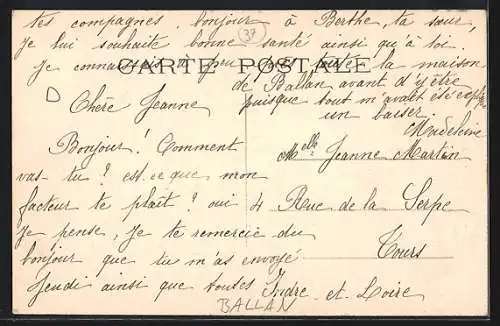 Chère Jeanne
Bonjour! Comment
vas-tu? est-ce que mon
facteur te plaît? oui
je pense, je te remercie du
bonjour que tu m'as envoyé
Jeudi ainsi que toutes
tes compagnes, bonjour à Berthe, ta sœur,
je lui souhaite bonne santé ainsi qu'à toi.
Je connaissais un peu la maison
de Ballan avant d'y être
puisque tout m'avait été expliqué
un baiser
Madeleine
37
CARTE POSTALE
Melle Jeanne Martin
4 Rue de la Serpe
Tours
Indre-et-Loire
BALLAN